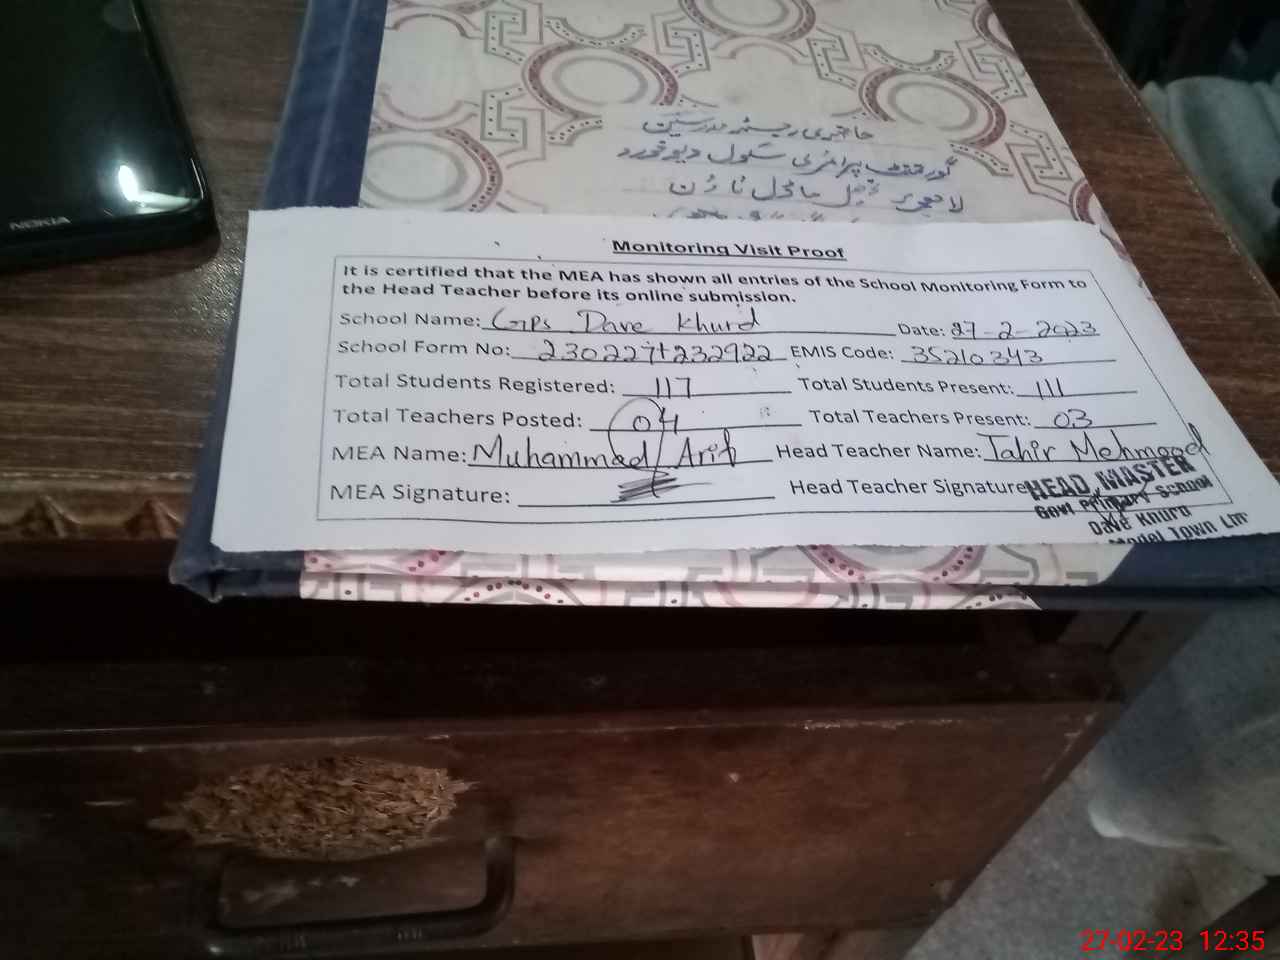 NOKIA
حاضری رجسٹر مدرسین
گورنمنٹ پرائمری سکول دیو خورد
لاہور ماڈل ٹاؤن
Monitoring Visit Proof
It is certified that the MEA has shown all entries of the School Monitoring Form to
the Head Teacher before its online submission.
School Name: GPS Dave Khurd Date: 27-2-2023
School Form No: 230227t232922 EMIS Code: 35210343
Total Students Registered: 117 Total Students Present: 111
Total Teachers Posted: 04 Total Teachers Present: 03
MEA Name: Muhammad Arif Head Teacher Name: Tahir Mehmood
MEA Signature: Head Teacher Signature
HEAD MASTER
Govt Primary School
Dave Khurd
Model Town LHR
27-02-23 12:35